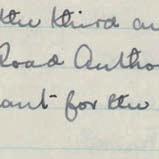 the third an
Road Autho
ant for the